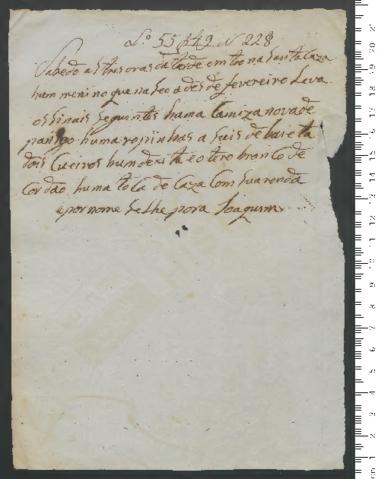 Lº 55 f 49 N 228
Sabedo as tres oras da tarde emtro na Santa Caza
hum menino que naseo a des de fevereiro Leva
os sinais seguintes huma Camiza nova de
panno huma ropinha azuis de baieta
dois Cueiros hum de xita e o tero branco de
Cordão huma toca de Caza Com sua renda
e por nome se lhe pora Joaquim